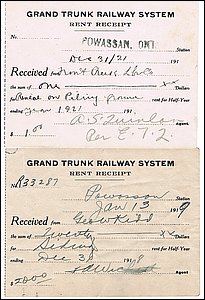 GRAND TRUNK RAILWAY SYSTEM
RENT RECEIPT
POWASSAN, ONT
Station
Dec 31/21 191
Received from
the sum of one xx Dollars
Rental on Piling Ground rent for Half-Year
ending Year 1921 191
$ 1.00 A. S. Quinlan AGENT
Per E.T.2
GRAND TRUNK RAILWAY SYSTEM
RENT RECEIPT
No R33287
Powassan Station
Jan 13 1919
Received from Geo W Kidd
the sum of Twenty xx Dollars
Siding rent for Half-Year
ending Dec 31 1918
$ 20.00 AGENT